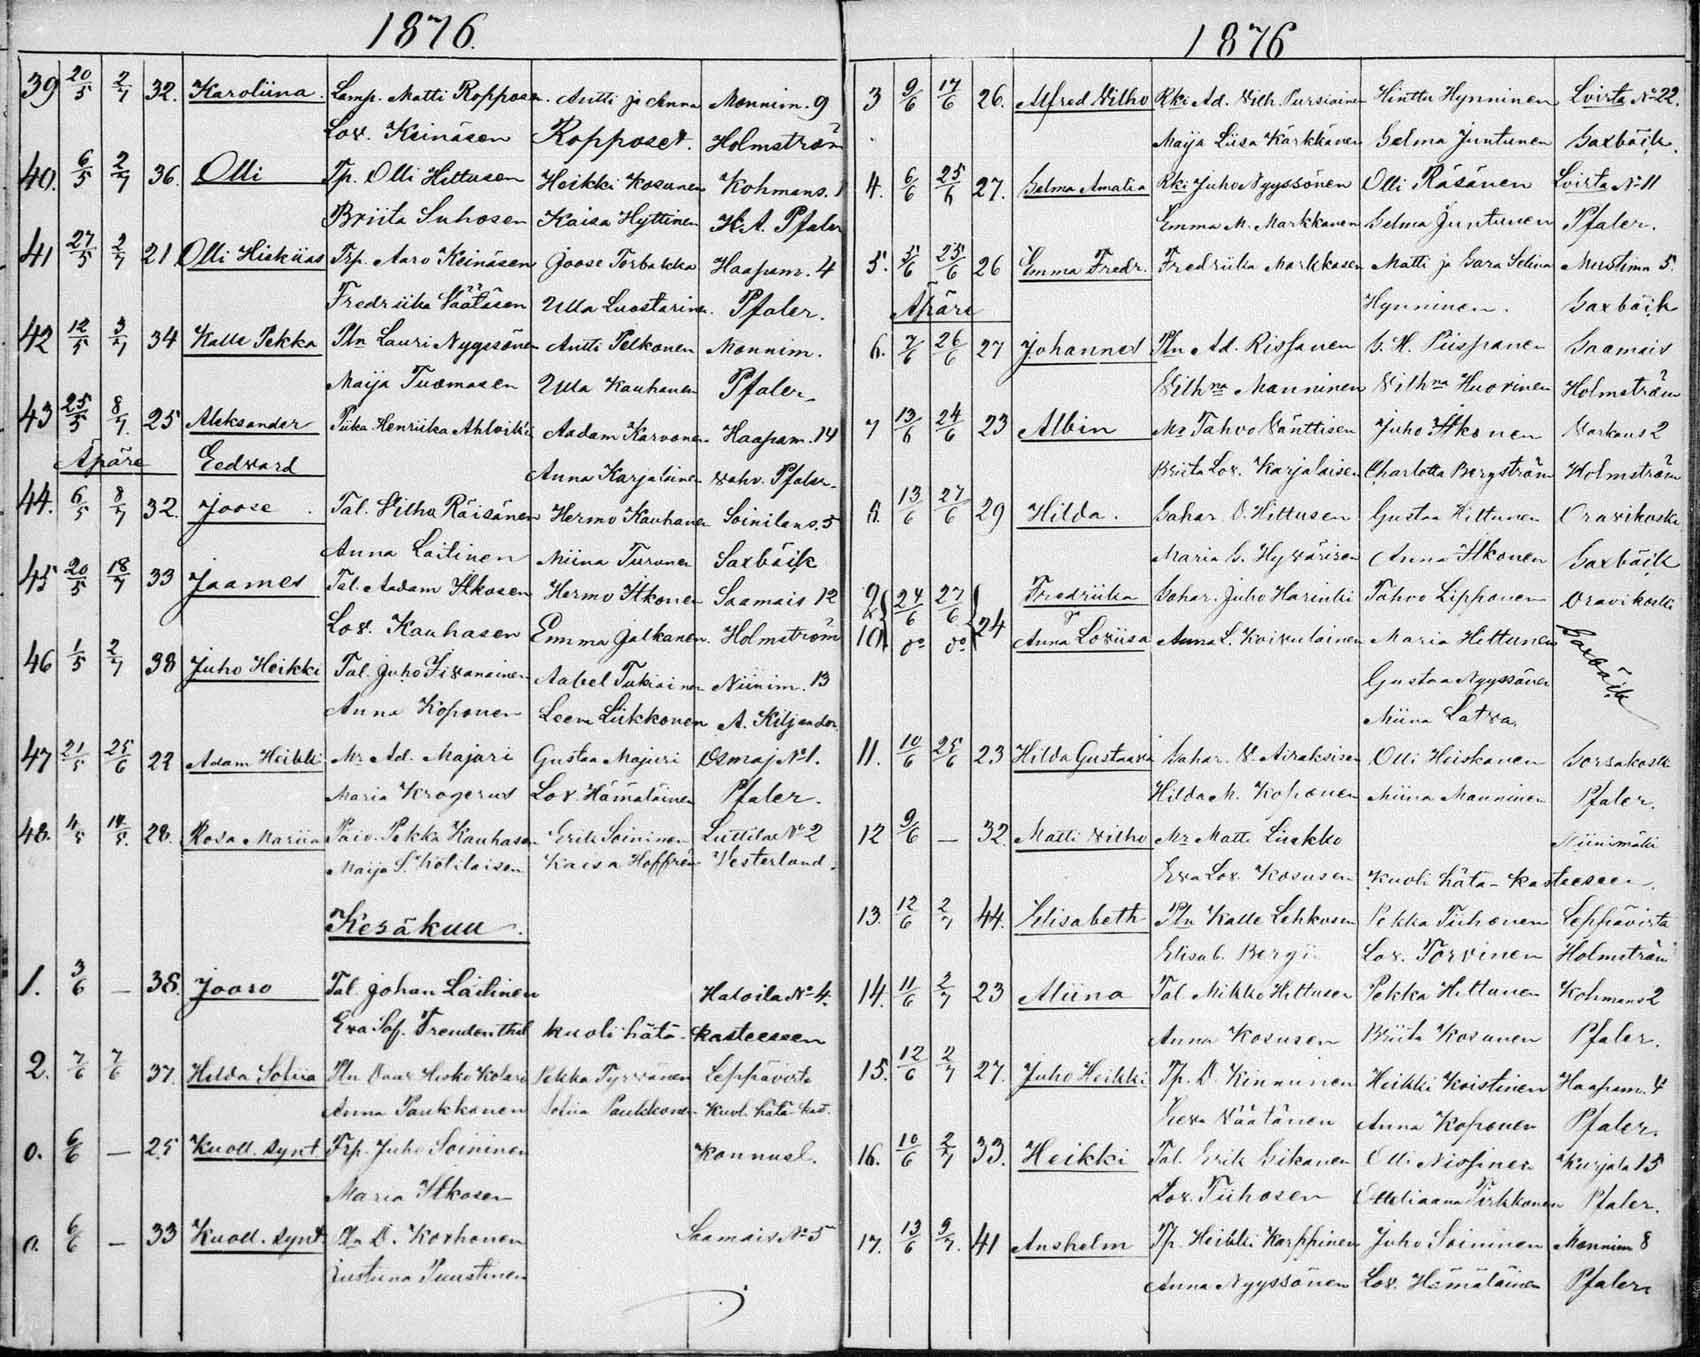 1876.
39 20/5 2/7 32. Karoliina. Lamp. Matti Ropposen. Antti ja Anna Mannim. 9
Lov. Keinäsen Ropposet. Holmström
40. 6/5 2/7 36. Olli Tp. Olli Hittusen Heikki Kosunen Kohmans. 1
Briita Suhosen Kaisa Hyttinen K.A. Pfaler
41 27/5 2/7 21 Olli Hiskias Trp. Aaro Keinäsen Joose Torbakka Haapam. 4
Fredriika Väätäsen Ulla Luostarinen. Pfaler.
42 12/5 3/7 34 Kalle Pekka Ptn Lauri Nyyssönen Antti Pelkonen Mannim.
Maija Tuomasen Ulla Kauhanen Pfaler.
43 25/5 8/7. 25 Aleksander Piika Henriika Ahlvik'in Aadam Karvonen Haapam. 14
Äpäre Eedvard Anna Karjalainen vahv. Pfaler.
44. 6/5 8/7 32. Joose. Tal. Vilho Räisänen Hermo Kauhanen Soinilans. 5
Anna Laitinen Miina Turunen Saxbäck
45 20/5 18/7 33 Jaames Tal. Aadam Itkosen Hermo Itkonen Saamais 12
Lov. Kauhasen Emma Jalkanen. Holmström
46 1/5 2/7 38 Juho Heikki Tal. Juho Tivanainen Aabel Tukiainen Niinim. 13
Anna Koponen Leena Liikkonen A. Kiljander
47 21/5 25/6 22 Adam Heikki Mr Ad. Majuri Gustaa Majuri Osmaj No 1.
Maria Krogerus Lov. Hämäläinen Pfaler.
48. 4/5 14/5. 28. Rosa Mariia Päiv. Pekka Kauhasen Erik Soininen Luttilax No 2
Maija S. Kotilaisen Kaisa Hoffrén Vesterlund.
Kesäkuu.
1. 3/6 — 38. Jooso Tal. Johan Laitinen Hatoila No 4.
Eva Sof. Freudenthal kuoli hätä-kasteeseen
2. 7/6 7/6 37. Hilda Sofiia Ptn Pekka Tyrväinen Leppävirta
Anna Paukkonen Sofiia Paukkonen kuol. hätä-kas.
0. 6/6 — 25 Kuoll. synt Trp. Juho Soininen Konnusl.
Maria Itkosen
0. 6/6 — 33 Kuoll. synt. Ptn D. Korhonen Saamais No 5
Eustiina Puustinen
1876
3 9/6 17/6 26. Alfred Vilho Rki Ad. Vilh. Pursiainen Hinttu Hynninen Lvirta No 22.
Maija Liisa Kärkkänen Selma Juntunen Saxbäck.
4. 6/6 25/6 27. Selma Amalia Rki Juho Nyyssönen Olli Räsänen Lvirta No 11
Emma M. Markkanen Selma Juntunen Pfaler.
5. 5/6 25/6 26 Emma Fredr. Fredriika Markkasen Matti ja Sara Selina Mustinm 5.
Äpäre Hynninen. Saxbäck
6. 7/6 26/6 27 Johannes Ptn Ad. Rissanen G. H. Piispanen Saamais
Vilhna Manninen Vilhna Huovinen Holmström
7 13/6 24/6 23 Albin Mr Tahvo Vänttisen Juho Itkonen Varkaus 2
Briita Lov. Karjalaisen Charlotta Bergström Holmström
8. 13/6 27/6 29 Hilda. Sahar. O. Hittusen Gustaa Hittunen Oravikoski
Maria S. Hyvärisen Anna Itkonen Saxbäck
9 24/6 27/6 24 Fredriika Sahar. Juho Harinki Tahvo Lipponen Oravikoski
10 do do Anna Loviisa Anna L. Koivulainen Maria Hittunen Saxbäck
Gustaa Nyyssönen
Miina Latva.
11. 10/6 25/6 23 Hilda Gustaava Sahar. V. Airaksisen Olli Hiiskanen Sorsakoski
Hilda M. Koponen Miina Manninen Pfaler.
12 9/6 — 32. Matti Vilho Mr Matti Liukko Niinimäki
Eva Lov. Kosusen kuoli hätä-kasteeseen.
13. 12/6 2/7 44. Elisabeth Ptn Kalle Lehkosen Pekka Tiihonen Leppävirta
Elisab. Bergi. Lov. Torvinen Holmström
14. 11/6 2/7 23 Aliina Tal Mikko Hittusen Pekka Hittunen Kohmans 2
Anna Kosusen Briita Kosunen Pfaler.
15. 12/6 2/7 27. Juho Heikki Tp. D. Kinnunen Heikki Koistinen Haapam. 4
Eeva Väätänen Anna Koponen Pfaler.
16. 10/6 2/7 33. Heikki Tal. Erik Sikanen Olli Nissinen Kurjala 15
Lov. Tiihosen Otteliaana Pirkkonen Pfaler.
17. 13/6 9/7. 41 Anshelm Tp. Heikki Karppinen Juho Soininen Mannim 8
Anna Nyyssönen Lov. Hämäläinen Pfaler